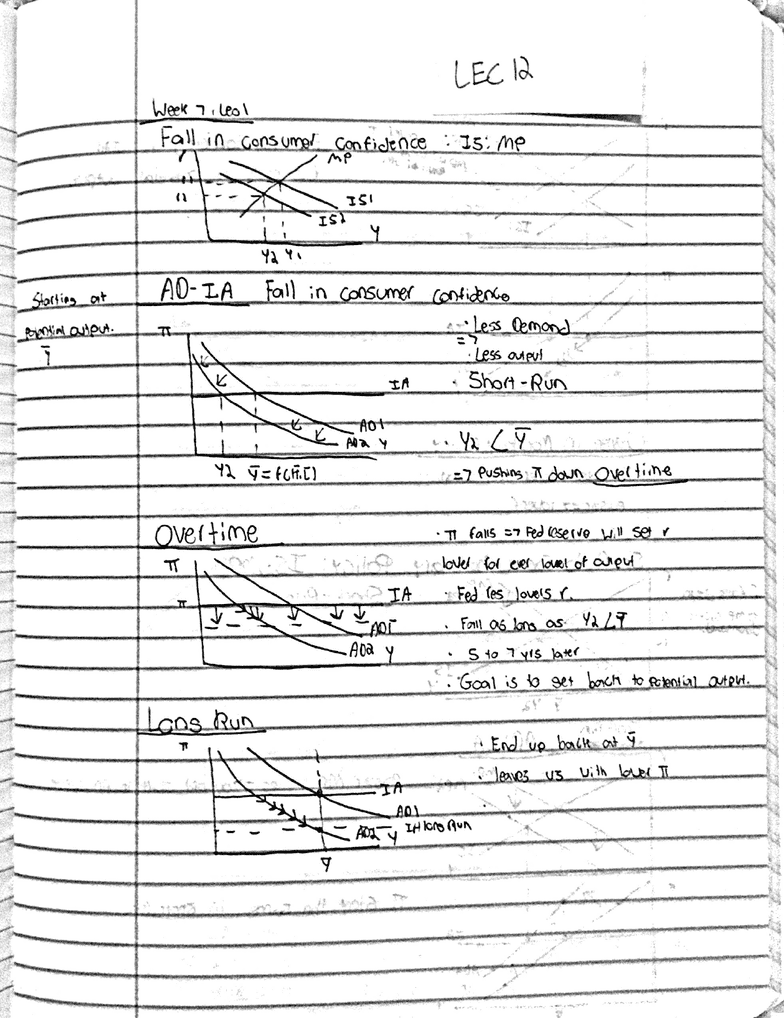 LEC 12
Week 7, Lec 1
Fall in consumer confidence : IS: MP
r
MP
r1
r2
IS1
IS2
Y
Y2 Y1
AD-IA Fall in consumer confidence
Starting at
Potential output.
Ȳ
π
IA
AD1
AD2 Y
Y2 Ȳ =
· Less Demand
=7
· Less output
· Short-Run
· Y2 < Ȳ
=7 Pushing π down Overtime
Overtime
π
π
IA
AD1
AD2 Y
· π falls =7 Fed reserve will set r
lower for ever level of output
· Fed res lowers r.
· Fall as long as Y2 < Ȳ
· 5 to 7 yrs later
· Goal is to get back to potential output.
Long Run
π
IA
AD1
AD2 Y IA long Run
Ȳ
· End up back at Ȳ
· leaves us with lower π